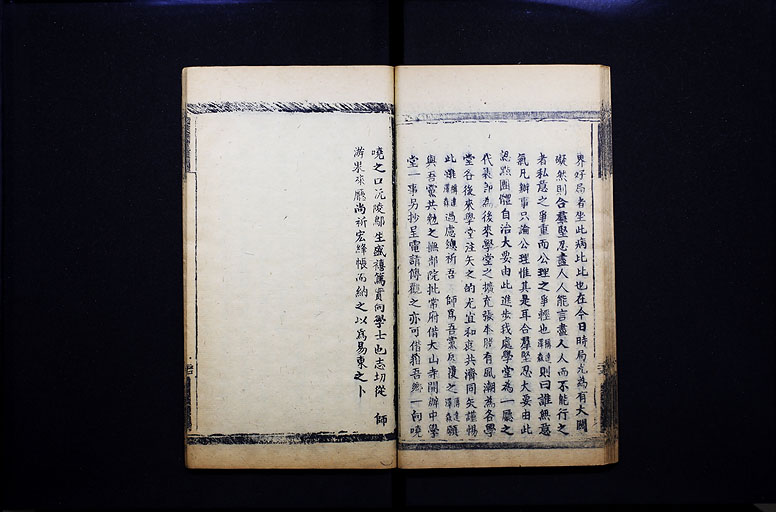 界好局者坐此病比比也在今日時局尤為有大關
礙然則合羣堅忍盡人人能言盡人人而不能行之
者私意之爭重而公理之爭輕也則曰誰無意
氣凡辦事只論公理惟其是耳合羣堅忍大要由此
認點團體自治大要由此進步我處學堂為一廳之
代表即為後來學堂之擴充張本勝有風潮為各學
堂各後來學堂注矢之的尤宜和衷共濟同矢謹惕
此雖過慮總祈吾 師為吾黨反復之願
與吾黨共勉之撫部院批常府借大山寺開辦中學
堂一事另抄呈電請傳觀之亦可借彌吾鄉一刻嘵
嘵之口沅陵鄢生盛禧篤實向學士也志切從 師
游果來廳尚祈宏絳帳而納之以為易東之卜